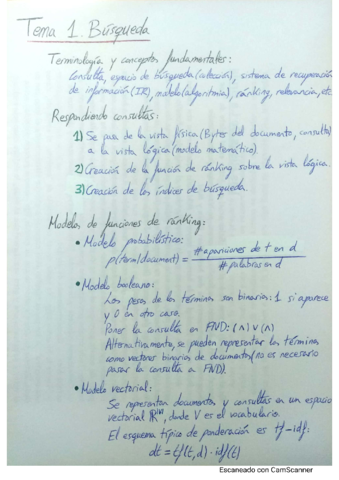 Tema 1. Búsqueda.
Terminología y conceptos fundamentales:
Consulta, espacio de búsqueda (colección), sistema de recuperación
de información (IR), modelo (algoritmia), ránking, relevancia, etc.
Respondiendo consultas:
1) Se pasa de la vista física (Bytes del documento, consulta)
a la vista lógica (modelo matemático).
2) Creación de la función de ránking sobre la vista lógica.
3) Creación de los índices de búsqueda.
Modelos de funciones de ránking:
• Modelo probabilístico:
p(term|document) = # apariciones de t en d / # palabras en d
• Modelo booleano:
Los pesos de los términos son binarios: 1 si aparece
y 0 en otro caso.
Poner la consulta en FND: (∧) ∨ (∧)
Alternativamente, se pueden representar los términos
como vectores binarios de documentos (no es necesario
pasar la consulta a FND).
• Modelo vectorial:
Se representan documentos y consultas en un espacio
vectorial ℝ^|V|, donde V es el vocabulario.
El esquema típico de ponderación es tf-idf:
dt = tf(t,d) · idf(t)
Escaneado con CamScanner